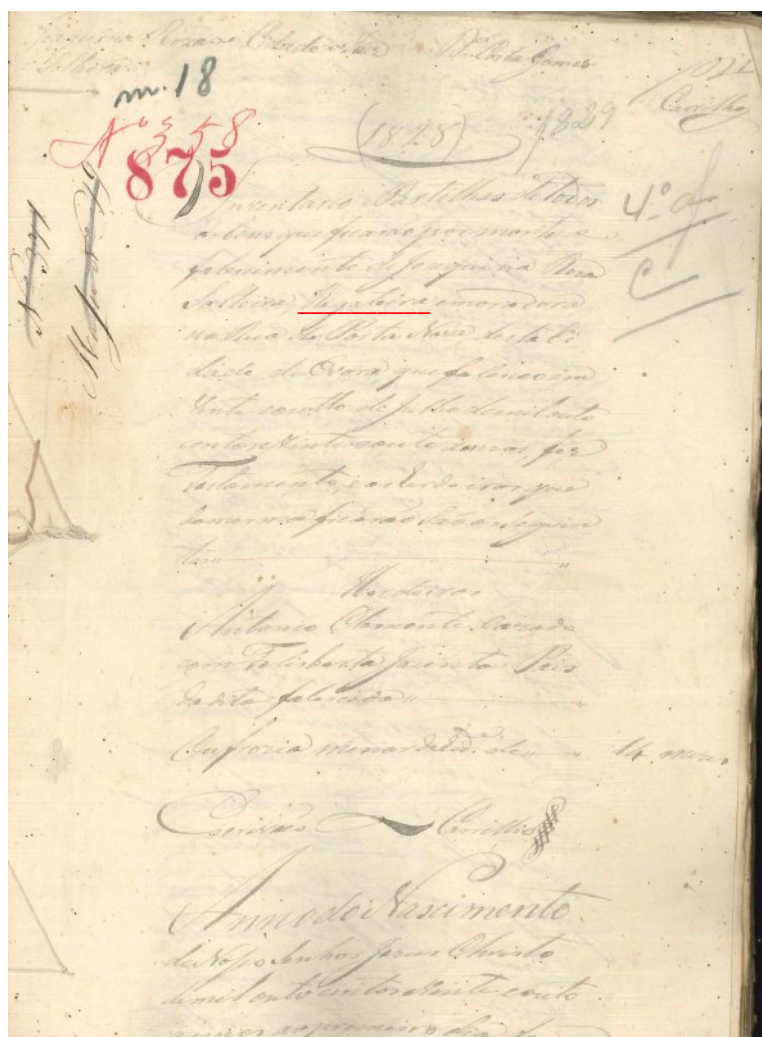 Joaquina Roza
Solteira
Costa Gomes
Carrilho
m. 18
Nº 358
875
(1828) 1829
4.º
C
Inventario Partilhas de todos
os bens que ficarão por morte e
falecimento de Joaquina Roza
Solteira, Regateira e moradora
na Rua da Porta Nova desta Ci
dade de Evora que faleceo em
vinte e oito de Julho de mil outo
centos e vinte e outo annos, fez
Testamento, e os Erdeiros que
ficarão são os seguin
tes
Herdeiros
Antonio Clemente Cazado
com Felisberta Jacinta Pais
da dita falecida
Eufrozia menor de Id.e de 14 mezes
Escrivão Carrilho
Anno do Nascimento
de Nosso Senhor Jezus Christo
de mil outo centos e vinte e outo
annos ao primeiro dia do